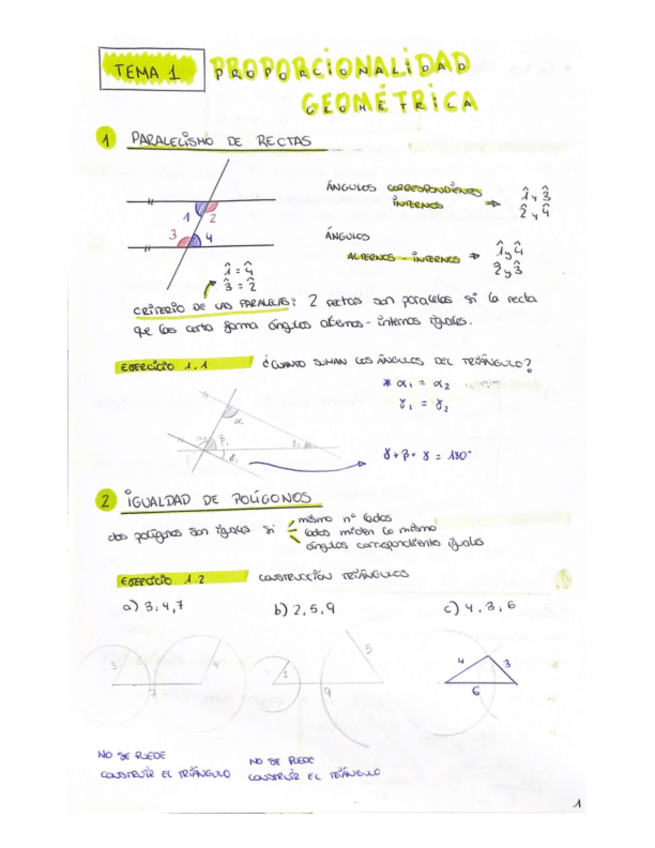 TEMA 1 PROPORCIONALIDAD
GEOMÉTRICA
1 PARALELISMO DE RECTAS
ÁNGULOS CORRESPONDIENTES
INTERNOS ⇒ 1̂ y 3̂
2̂ y 4̂
1 2
3 4
ÁNGULOS
ALTERNOS - INTERNOS ⇒ 1̂ y 4̂
2 y 3̂
1̂ = 4̂
3̂ = 2̂
CRITERIO DE LAS PARALELAS: 2 rectas son paralelas si la recta
que las corta forma ángulos alternos - internos iguales.
EJERCICIO 1.1 ¿CUANTO SUMAN LOS ÁNGULOS DEL TRIÁNGULO?
* α₁ = α₂
γ₁ = γ₂
α₁
β₁
γ + β + γ = 180°
2 IGUALDAD DE POLÍGONOS
dos polígonos son iguales si
mismo nº lados
lados miden lo mismo
ángulos correspondiente iguales
EJERCICIO 1.2 CONSTRUCCIÓN TRIÁNGULOS
a) 3, 4, 7 b) 2, 5, 9 c) 4, 3, 6
3 4 7
2 5 9
4 3 6
NO SE PUEDE
CONSTRUIR EL TRIÁNGULO
NO SE PUEDE
CONSTRUIR EL TRIÁNGULO
1